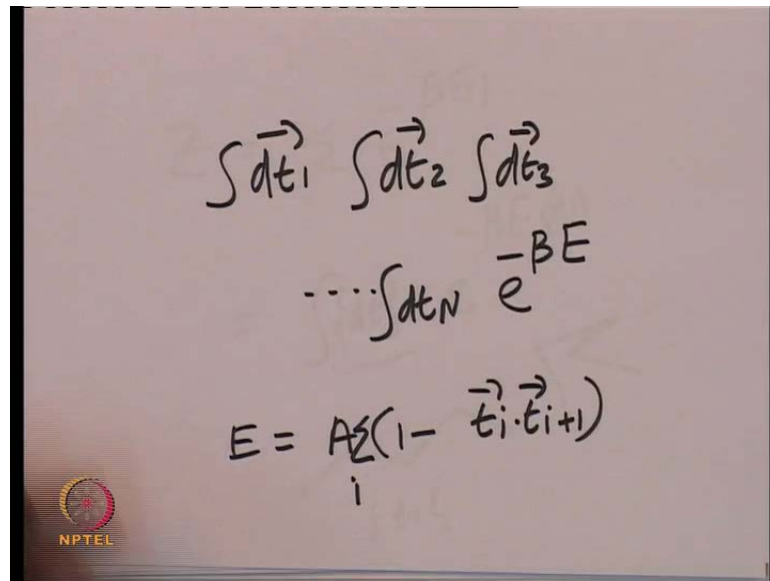 ∫dt⃗₁ ∫dt⃗₂ ∫dt⃗₃
....∫dt_N e^{-βE}
E = AΣ_i(1 - t⃗_i·t⃗_{i+1})
NPTEL